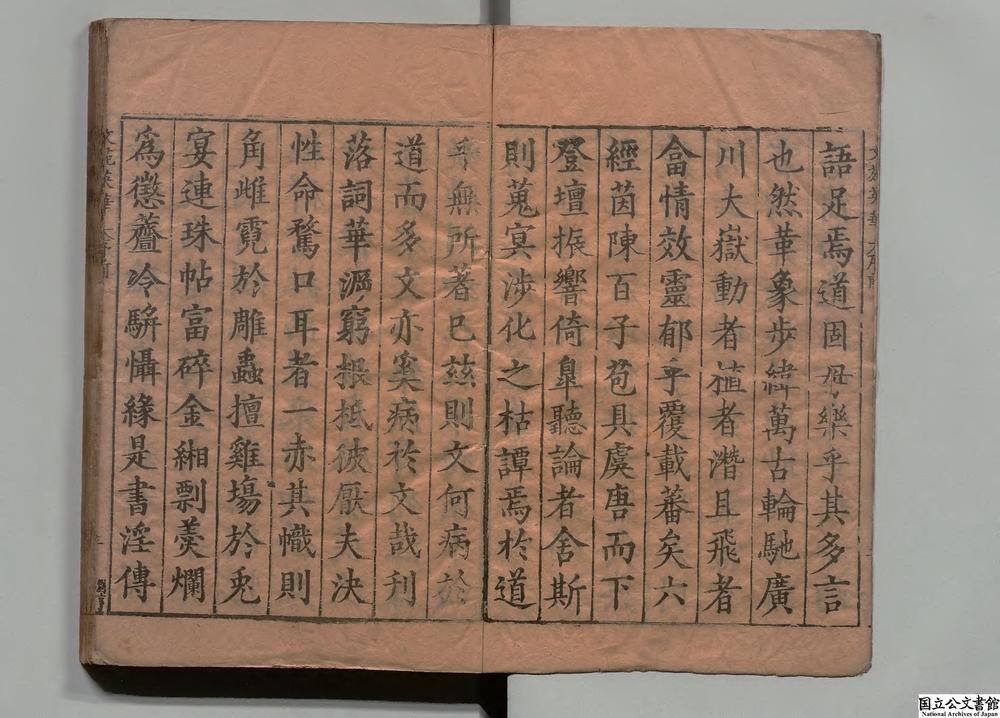 語足焉道固毋樂乎其多言
也然革象步緯萬古輪馳廣
川大嶽動者植者潛且飛者
畣情效靈郁乎覆載蕃矣六
經茵陳百子苞具虞唐而下
登壇振響倚皐聽論者舍斯
則蒐冥涉化之枯譚焉於道
乎無所著已玆則文何病於
道而多文亦奚病於文哉利
落詞華溺窮根柢彼厭夫決
性命騖口耳者一赤其幟則
角雌霓於雕蟲擅雞塲於兎
宴連珠帖富碎金緗剽羮爛
爲懲虀冷騈懾緣是書淫傳
文苑英華
文苑英華
国立公文書館
National Archives of Japan